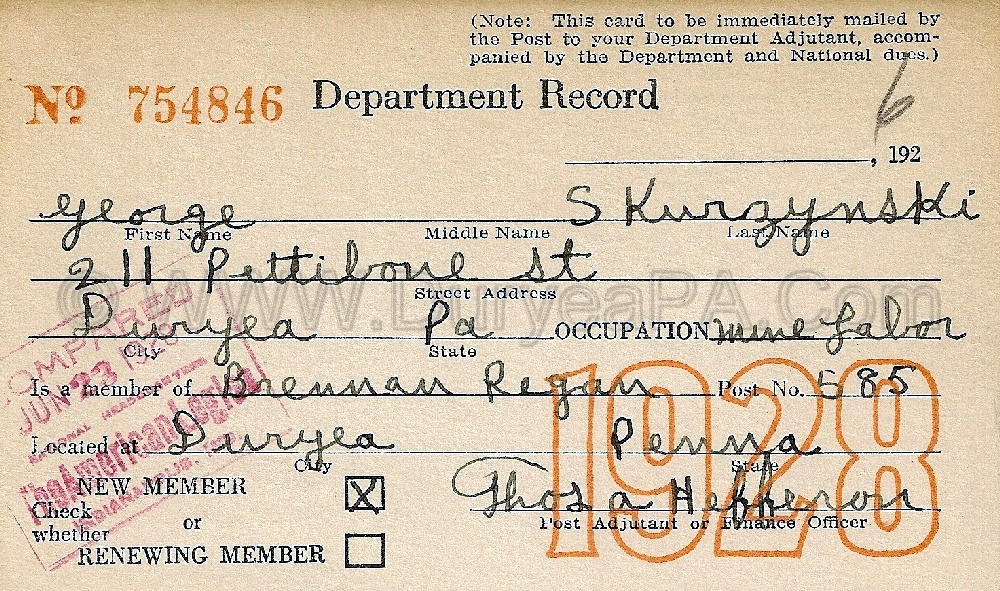 (Note: This card to be immediately mailed by
the Post to your Department Adjutant, accom-
panied by the Department and National dues.)
Nº 754846 Department Record
6
, 192
George Skurzynski
First Name Middle Name Last Name
211 Pettibone St
Street Address
© WWW.DuryeaPA.Com
Duryea Pa OCCUPATION mine Labor
City State
Is a member of Brennan Regan Post No. 585
Located at Duryea Penna
City State
COMPARED
JUN 23
The American Legion
INDIANAPOLIS,
1928
NEW MEMBER X
Check
whether or
RENEWING MEMBER
Thos a Heffernon
Post Adjutant or Finance Officer